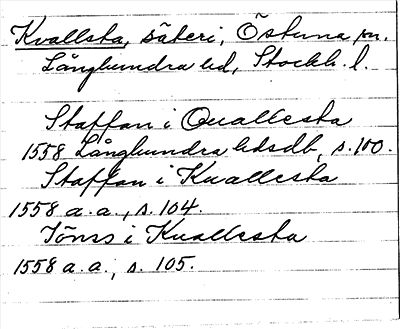 Kvallsta, säteri, Östuna sn.
Långhundra hd, Stockh. l.
Staffan i Quallesta
1558 Långhundra hdsdb, s. 100.
Staffan i Kuallesta
1558 a. a., s. 104.
Jöns i Kuallesta
1558 a. a., s. 105.